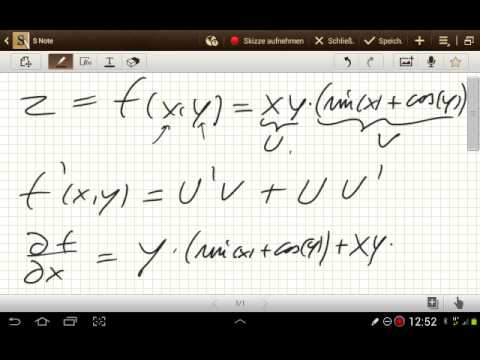 S Note
Skizze aufnehmen
Schließ.
Speich.
T
z = f(x,y) = xy·(sin(x)+cos(y))
U V
f'(x,y) = U'V + U U'
∂f/∂x = y·(sin(x)+cos(y))+xy·
1/1
12:52